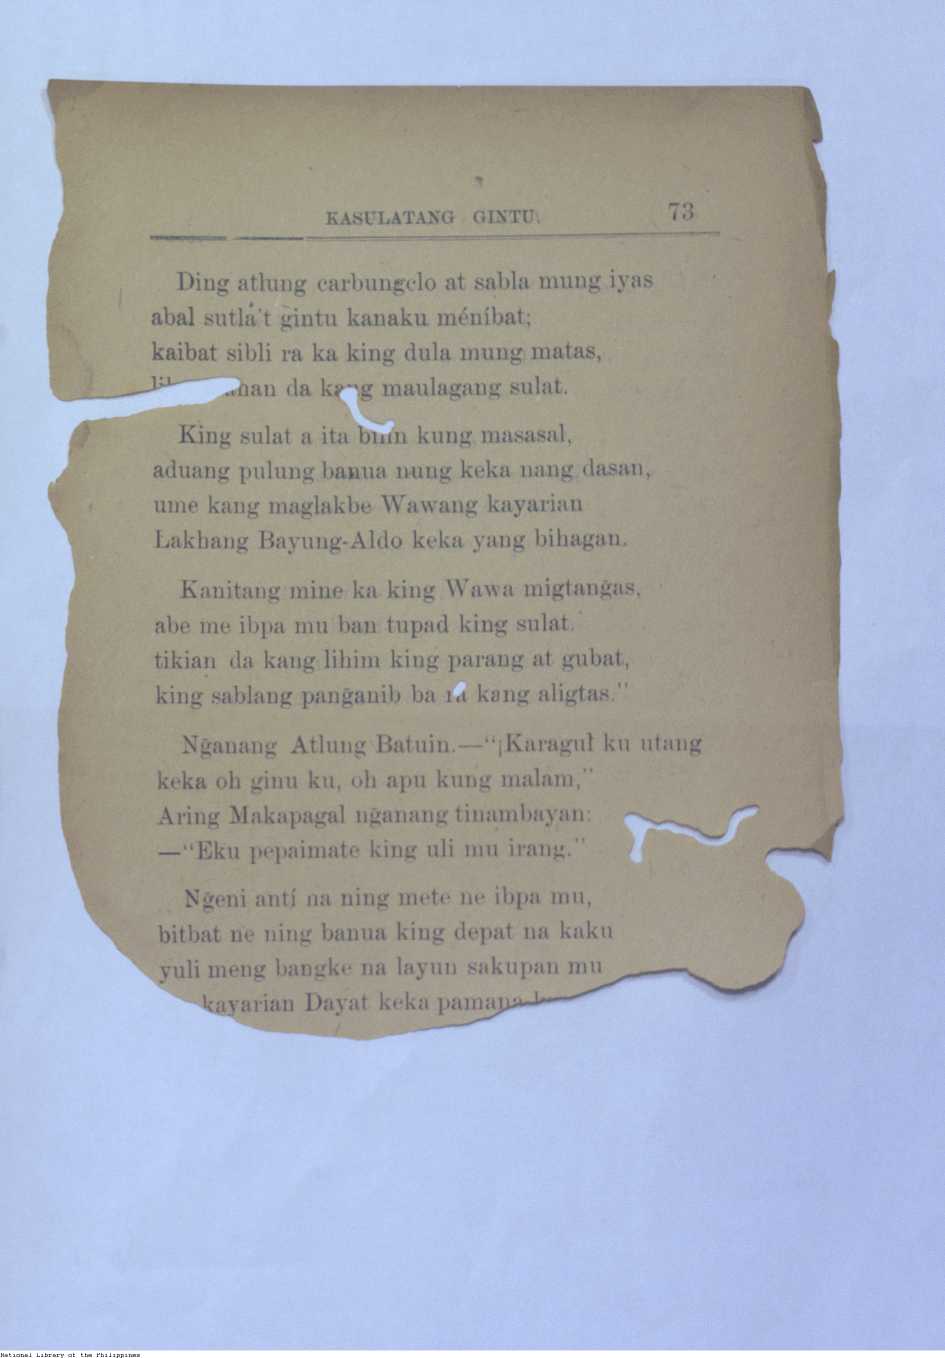 KASULATANG GINTU. 73
Ding atlung carbungclo at sabla mung iyas
abal sutlá't gintu kanaku méníbat;
kaibat sibli ra ka king dula mung matas,
da kang maulagang sulat.
King sulat a ita bilin kung masasal,
aduang pulung banua nung keka nang dasan,
ume kang maglakbe Wawang kayarian
Lakhang Bayung-Aldo keka yang bihagan.
Kanitang mine ka king Wawa migtang̃as,
abe me ibpa mu ban tupad king sulat.
tikian da kang lihim king parang at gubat,
king sablang pang̃anib ba ra kang aligtas."
Ng̃anang Atlung Batuin.—"¡Karagul ku utang
keka oh ginu ku, oh apu kung malam,"
Aring Makapagal ng̃anang tinambayan:
—"Eku pepaimate king uli mu irang."
Ng̃eni antí na ning mete ne ibpa mu,
bitbat ne ning banua king depat na kaku
yuli meng bangke na layun sakupan mu
kayarian Dayat keka pamana
National Library of the Philippines